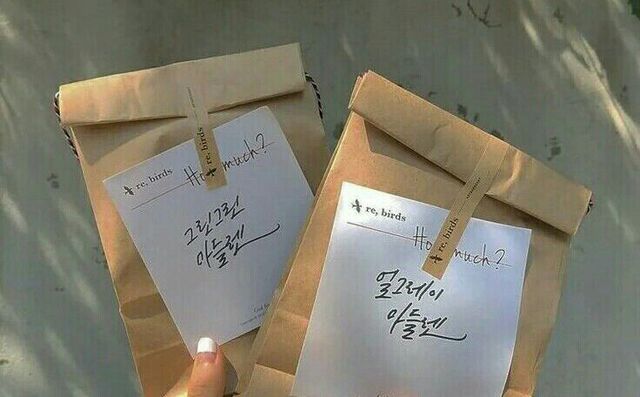 re, birds
re, birds
How much?
그린그린
마들렌
re, birds
re, birds
How much?
얼그레이
마들렌